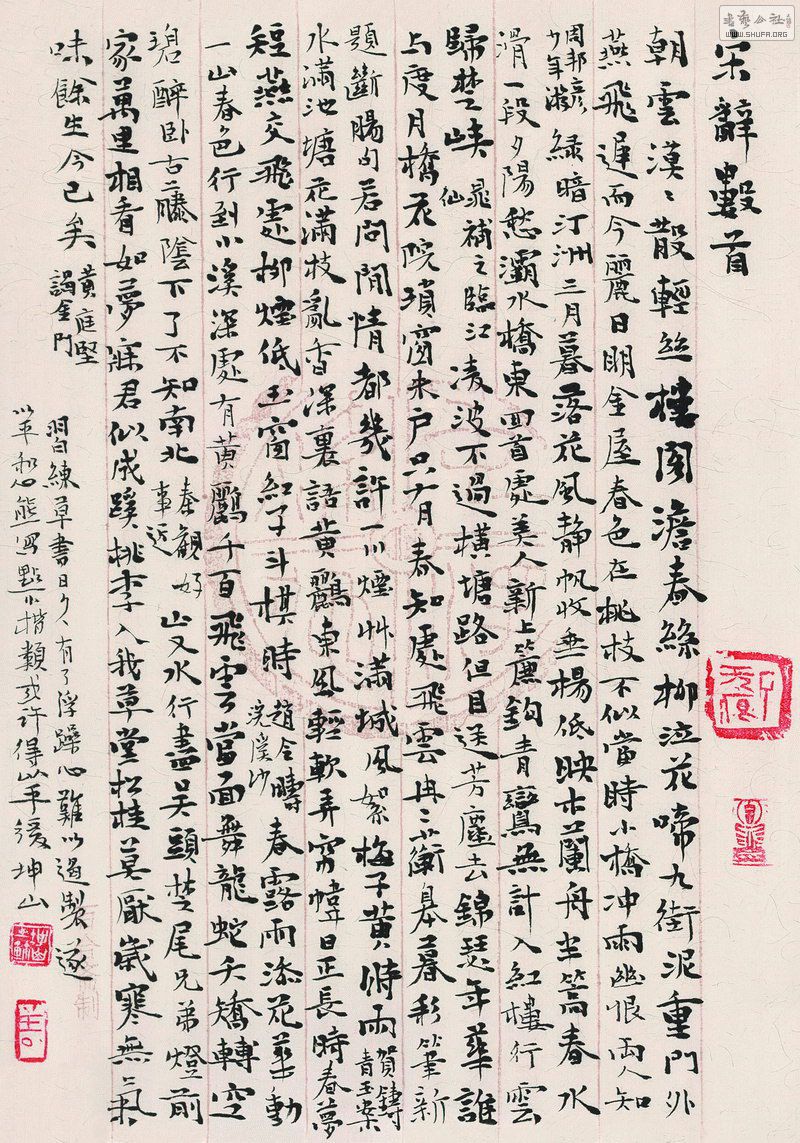 書藝公社
WWW.SHUFA.ORG
宋辭數首
朝雲漠〻散輕丝樓閣澹春絲柳泣花啼九街泥重門外
燕飛遲而今麗日明金屋春色在桃枝不似當時小橋冲雨幽恨兩人知
周邦彦少年游綠暗汀洲三月暮落花風静帆收垂楊低映木蘭舟半篙春水
滑一段夕陽愁灞水橋東回首處美人新上簾鈎青鸞無計入紅樓行雲
歸楚峽晁補之臨江仙凌波不過橫塘路但目送芳塵去錦瑟年華誰
与度月橋花院瑣窗朱户只有春知處飛雲冉〻蘅皋暮彩筆新
題斷腸句若問閒情都幾許一川煙艸滿城風絮梅子黄時雨賀鑄青玉案
水滿池塘花滿枝亂香深裏語黄鸝東風輕軟弄窗幃日正長時春夢
短燕交飛處柳煙低玉窗紅子斗棋時趙令疇浣溪沙春露雨添花花動
一山春色行到小溪深處有黄鸝千百飛雲當面舞龍蛇夭矯轉空
碧醉卧古藤陰下了不知南北秦觀好事近山又水行盡吴頭楚尾兄弟燈前
家萬里相看如夢寐君似成蹊桃李入我草堂松桂莫厭歲寒無气
味餘生今已矣黄庭堅謁金門
習練草書日久有了浮躁心難以遏製遂
以平和心態寫點小楷類或許得以平緩坤山